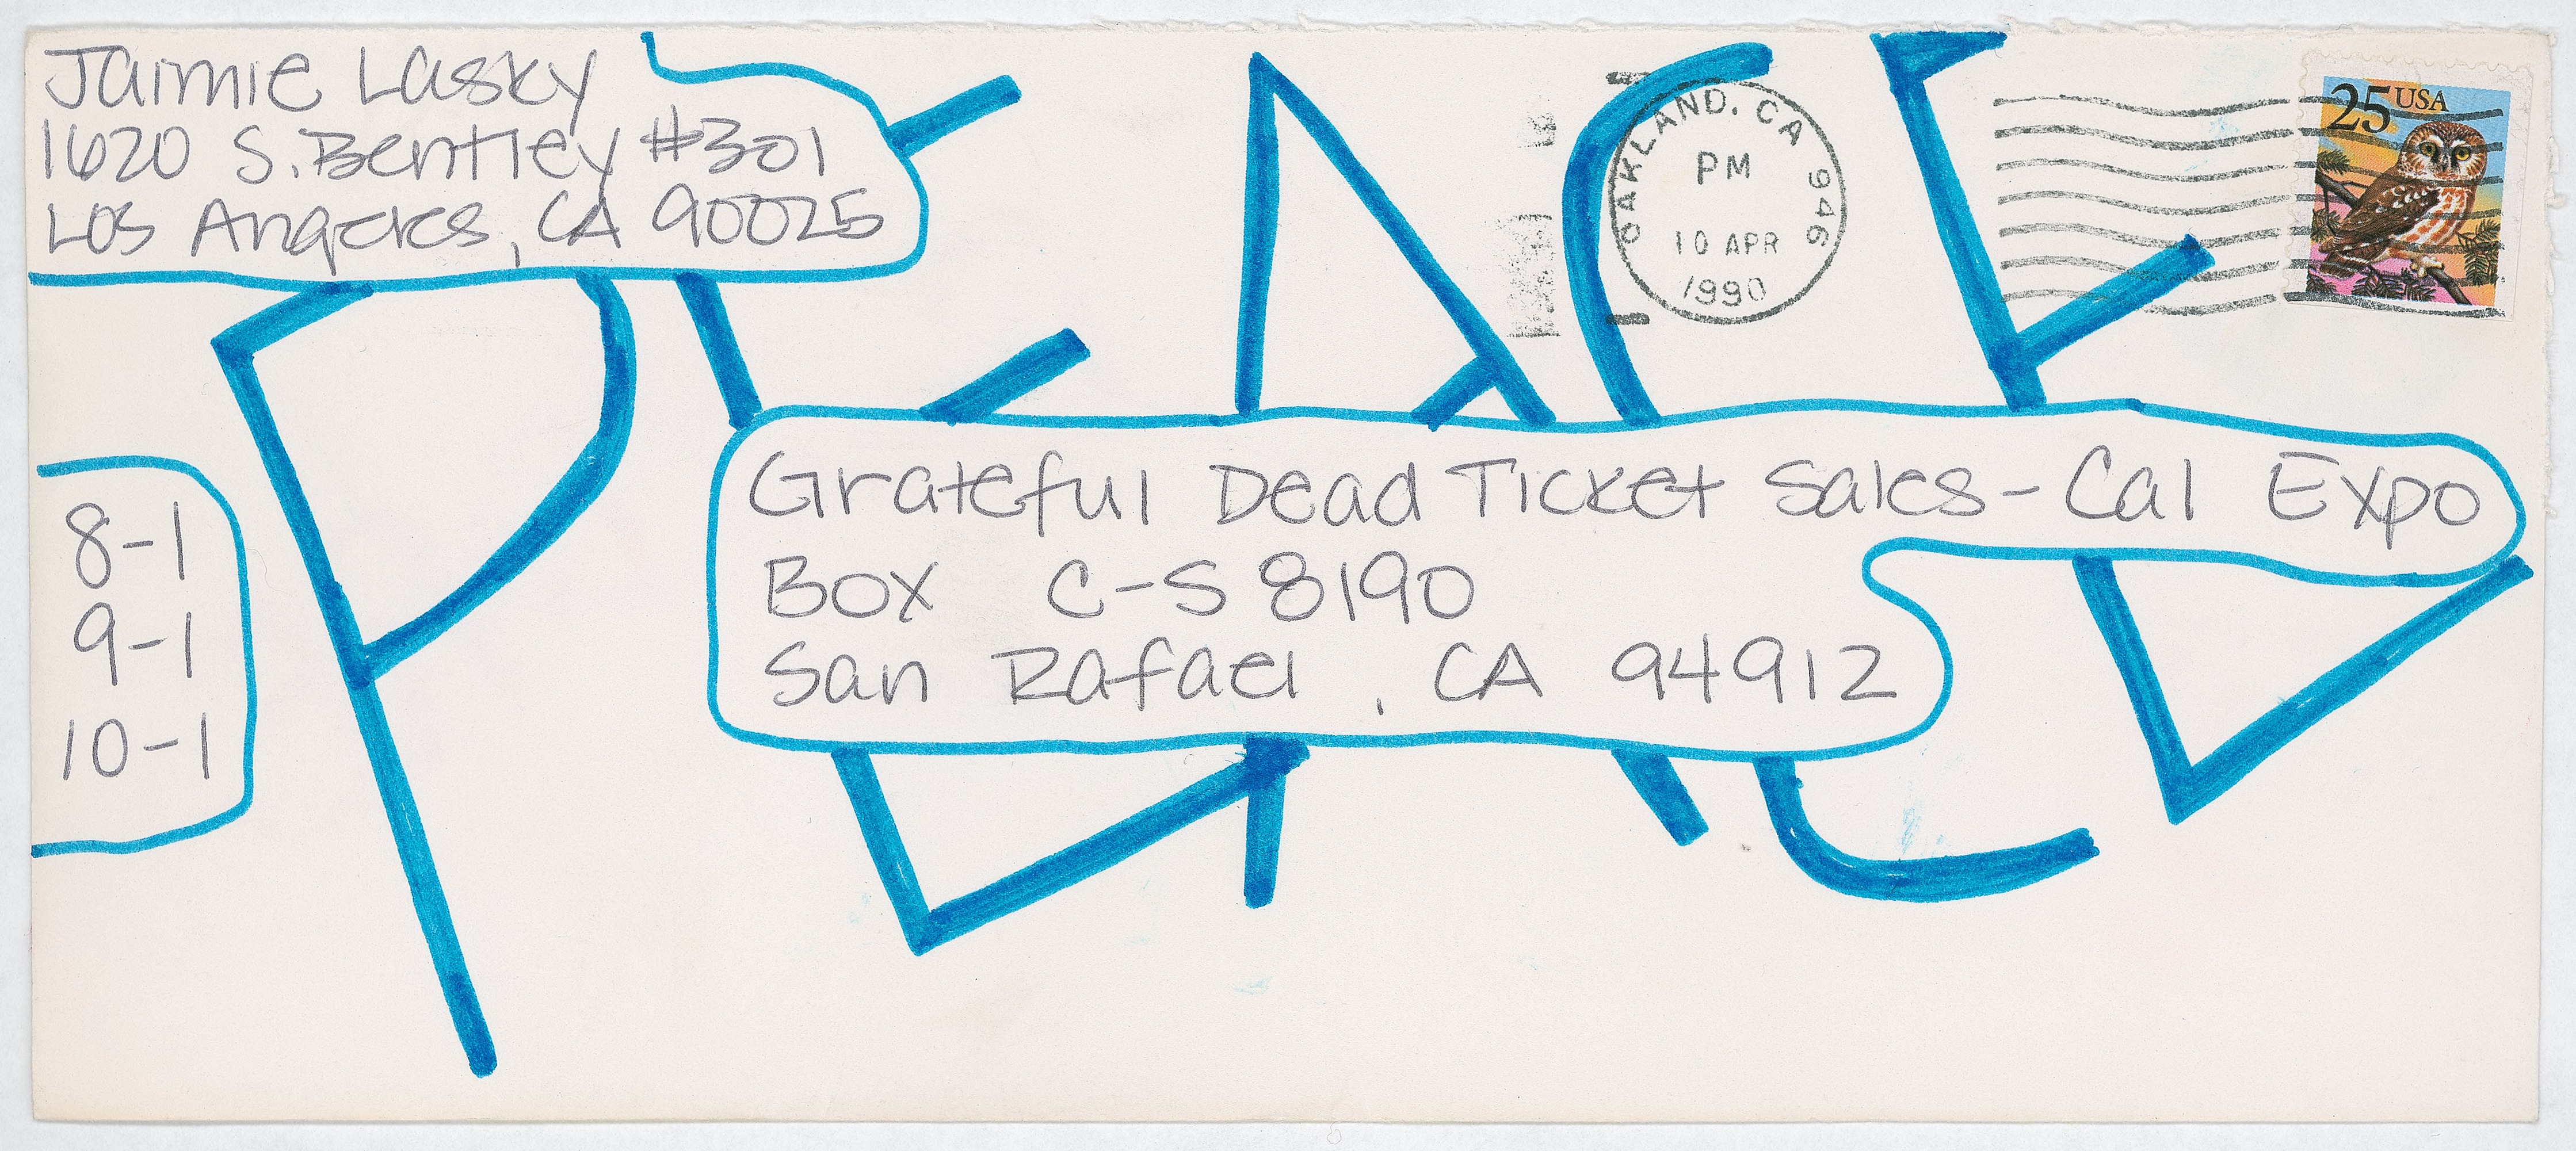 Jaimie Lasky
1620 S. Bentley #301
Los Angeles, CA 90025
PEACE
OAKLAND, CA 946
PM
10 APR
1990
25 USA
8-1
9-1
10-1
Grateful Dead Ticket Sales - Cal Expo
Box C-S 8190
San Rafael, CA 94912